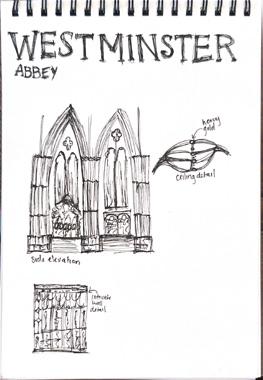 WESTMINSTER
ABBEY
heavy
gold
ceiling detail
Side elevation
intricate
wall
detail